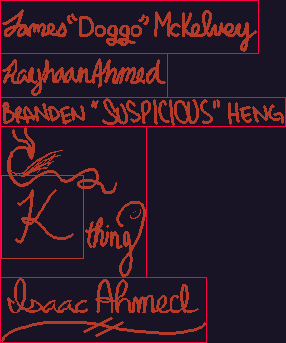 James "Doggo" McKelvey
Rayhaan Ahmed
BRANDEN "SUSPICIOUS" HENG
K thing
Isaac Ahmed